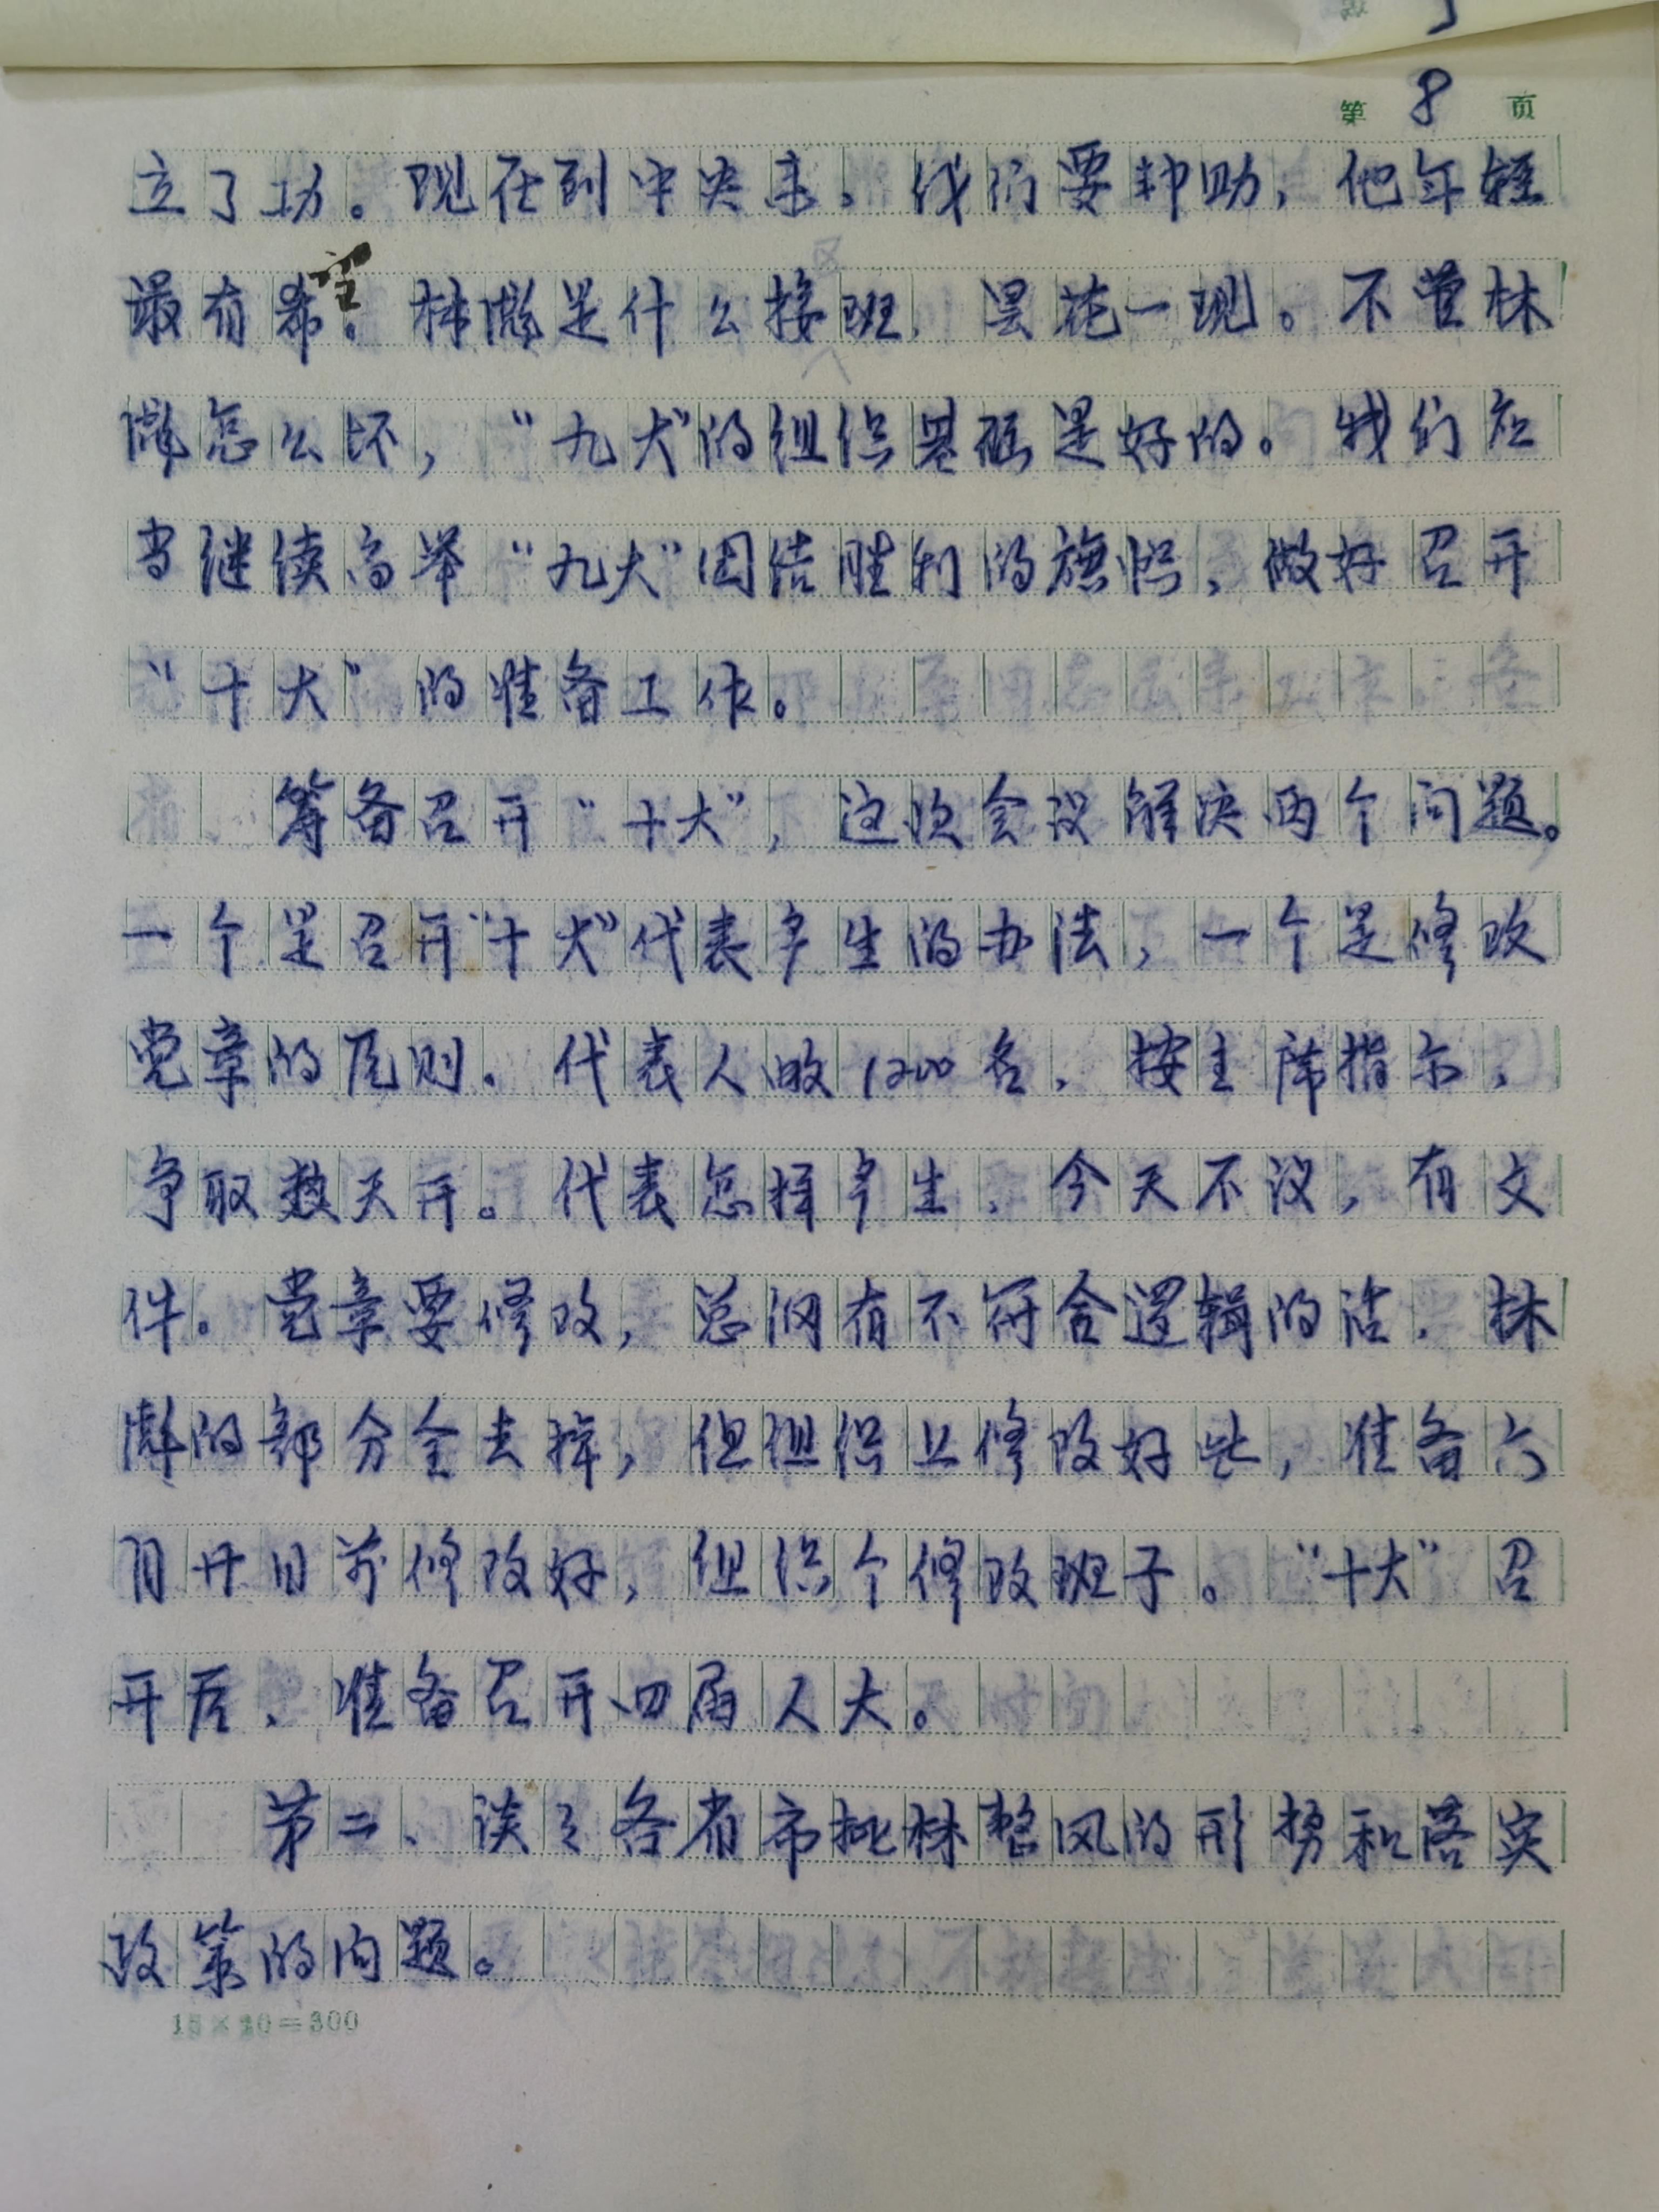 第 8 页
立了功。现在到中央来。我们要帮助,他年轻
最有希望。林彪是什么接班,昙花一现。不管林
彪怎么坏,“九大”的组织基础是好的。我们应
当继续高举“九大”团结胜利的旗帜,做好召开
“十大”的准备工作。
筹备召开“十大”,这次会议解决两个问题。
一个是召开“十大”代表产生的办法,一个是修改
党章的原则。代表人数1200名,按主席指示,
争取数天开。代表怎样产生,今天不议,有文
件。党章要修改,总纲有不符合逻辑的话,林
彪的部分全去掉,但组织上修改好些,准备六
月廿日前修改好,组织个修改班子。“十大”召
开后,准备召开四届人大。
第二、谈谈各省市批林整风的形势和落实
政策的问题。
15×20=300